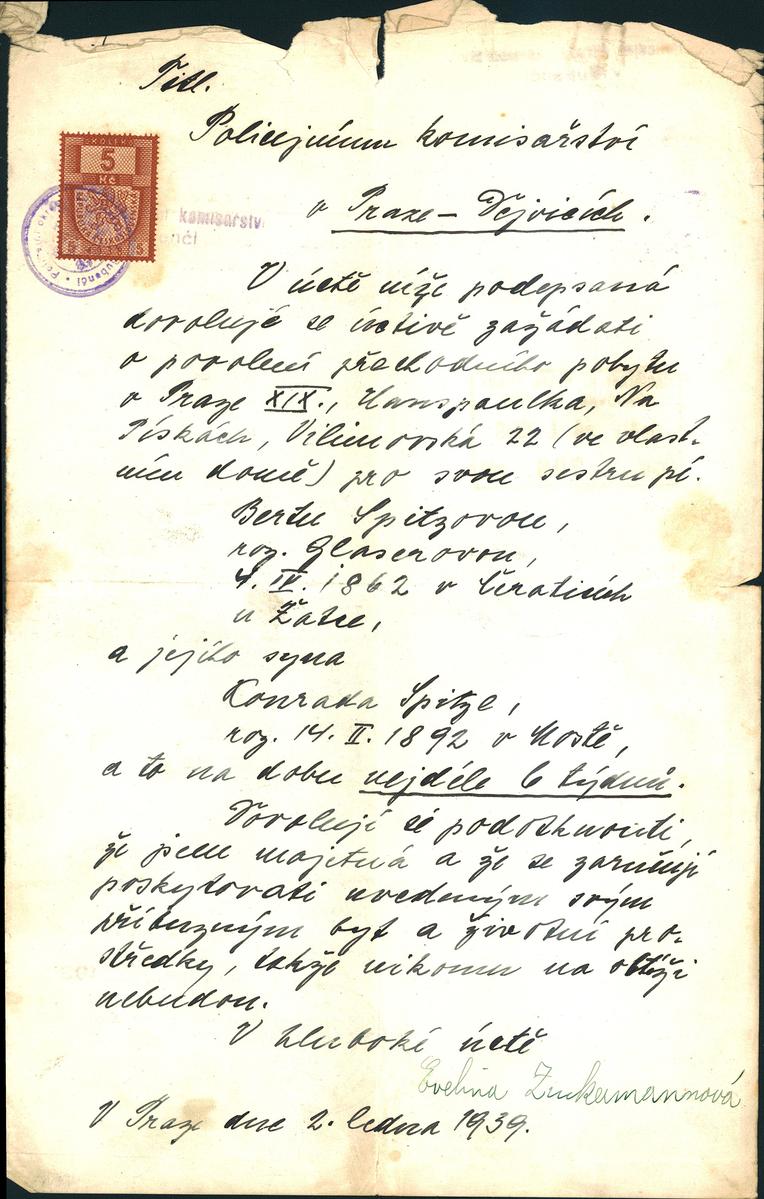 Titl.
Policejnímu komisařství
v Praze - Dejvicích.
KOLEK
5
Kč
komisařství
V úctě níže podepsaná
dovoluje se úctivě zažádati
o povolení přechodního pobytu
v Praze XIX., Hanspaulka, Na
Pískách, Vilimovská 22 (ve vlast-
ním domě) pro svou sestru pí.
Bertu Spitzovou,
roz. Glaserovou,
4. IV. 1862 v Čeraticích
u Žatce,
a jejího syna
Konrada Spitze,
roz. 14. II. 1892 v Mostě,
a to na dobu nejdéle 6 týdnů.
Dovoluji si podotknouti,
že jsem majetná a že se zaručuji
poskytovati uvedeným svým
příbuzným byt a životní pro-
středky, takže nikomu na obtíži
nebudou.
V hluboké úctě
Evelina Zuckermannová
V Praze dne 2. ledna 1939.